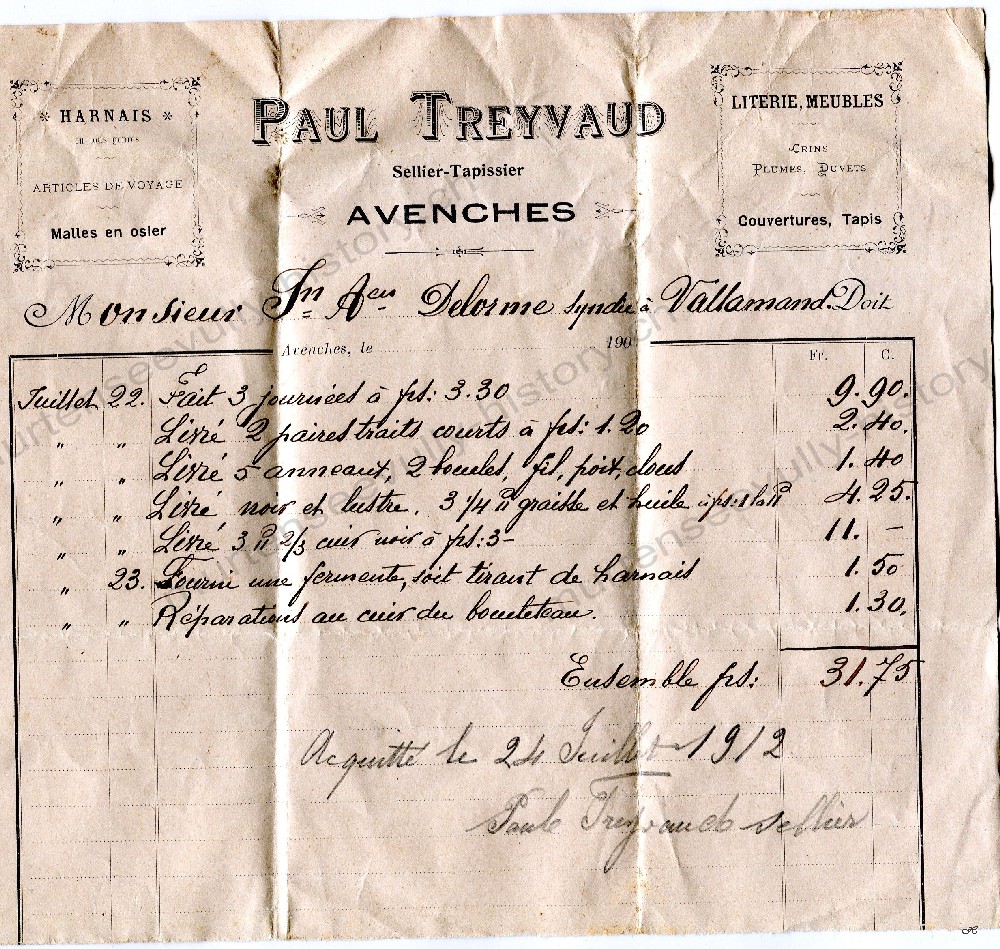 * HARNAIS *
EN TOUS GENRES
ARTICLES DE VOYAGE
Malles en osier
PAUL TREYVAUD
Sellier-Tapissier
AVENCHES
LITERIE, MEUBLES
CRINS
PLUMES, DUVETS
Couvertures, Tapis
Monsieur Jn Acn Delorme syndic à Vallamand. Doit
Avenches, le 190
Fr. C.
Juillet 22. Fait 3 journées à frs: 3.30 9.90.
" " Livré 2 paires traits courts à frs: 1.20 2.40.
" " Livré 5 anneaux, 2 boucles, fil, poix, clous 1.40
" " Livré noir et lustre, 3 1/4 ℔ graisse et huile à frs: 1 la ℔ 4.25.
" " Livré 3 ℔ 2/3 cuir noir à frs: 3- 11. -
" 23. Fourni une fermente, soit tirant de harnais 1.50
" " Réparations au cuir du 1.30.
Ensemble frs: 31.75
Acquitté le 24 Juillet 1912
Paul Treyvaud sellier